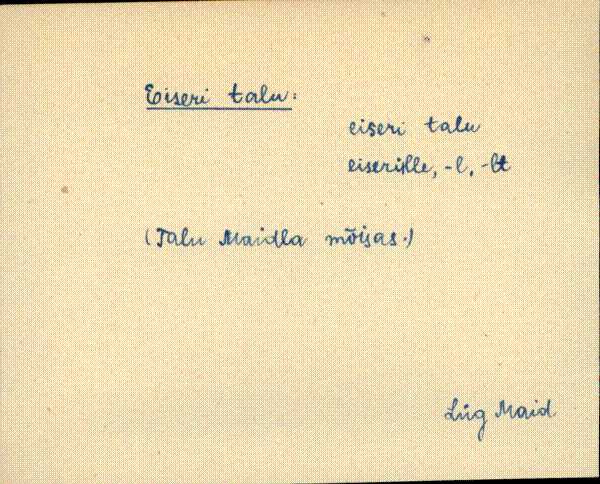 Eiseri talu:
eiseri talu
eiserille, -l, -lt
(Talu Maidla mõisas.)
Lüg Maid